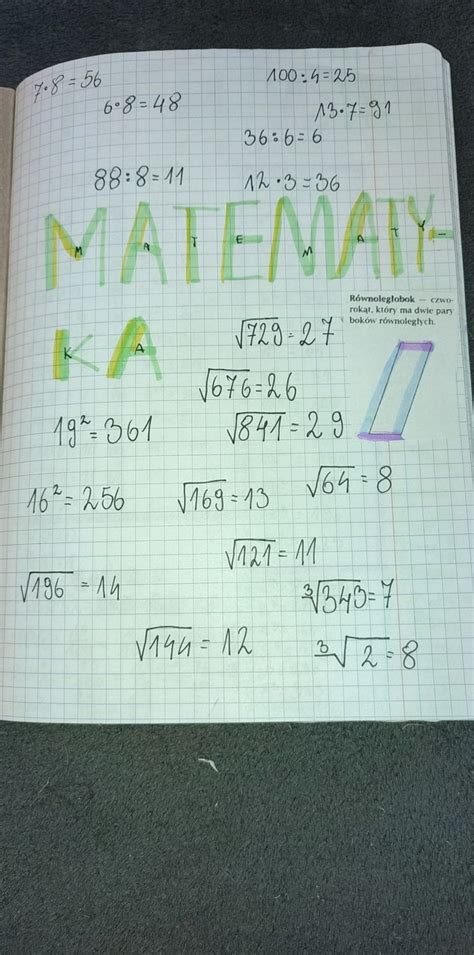 7·8=56
100:4=25
6·8=48
13·7=91
36:6=6
88:8=11
12·3=36
MATEMATY-
M A T E M A T Y
Równoległobok — czwo-
rokąt, który ma dwie pary
boków równoległych.
KA
K A
√729=27
√676=26
19²=361
√841=29
16²=256
√169=13
√64=8
√121=11
√196=14
∛343=7
√144=12
∛2=8